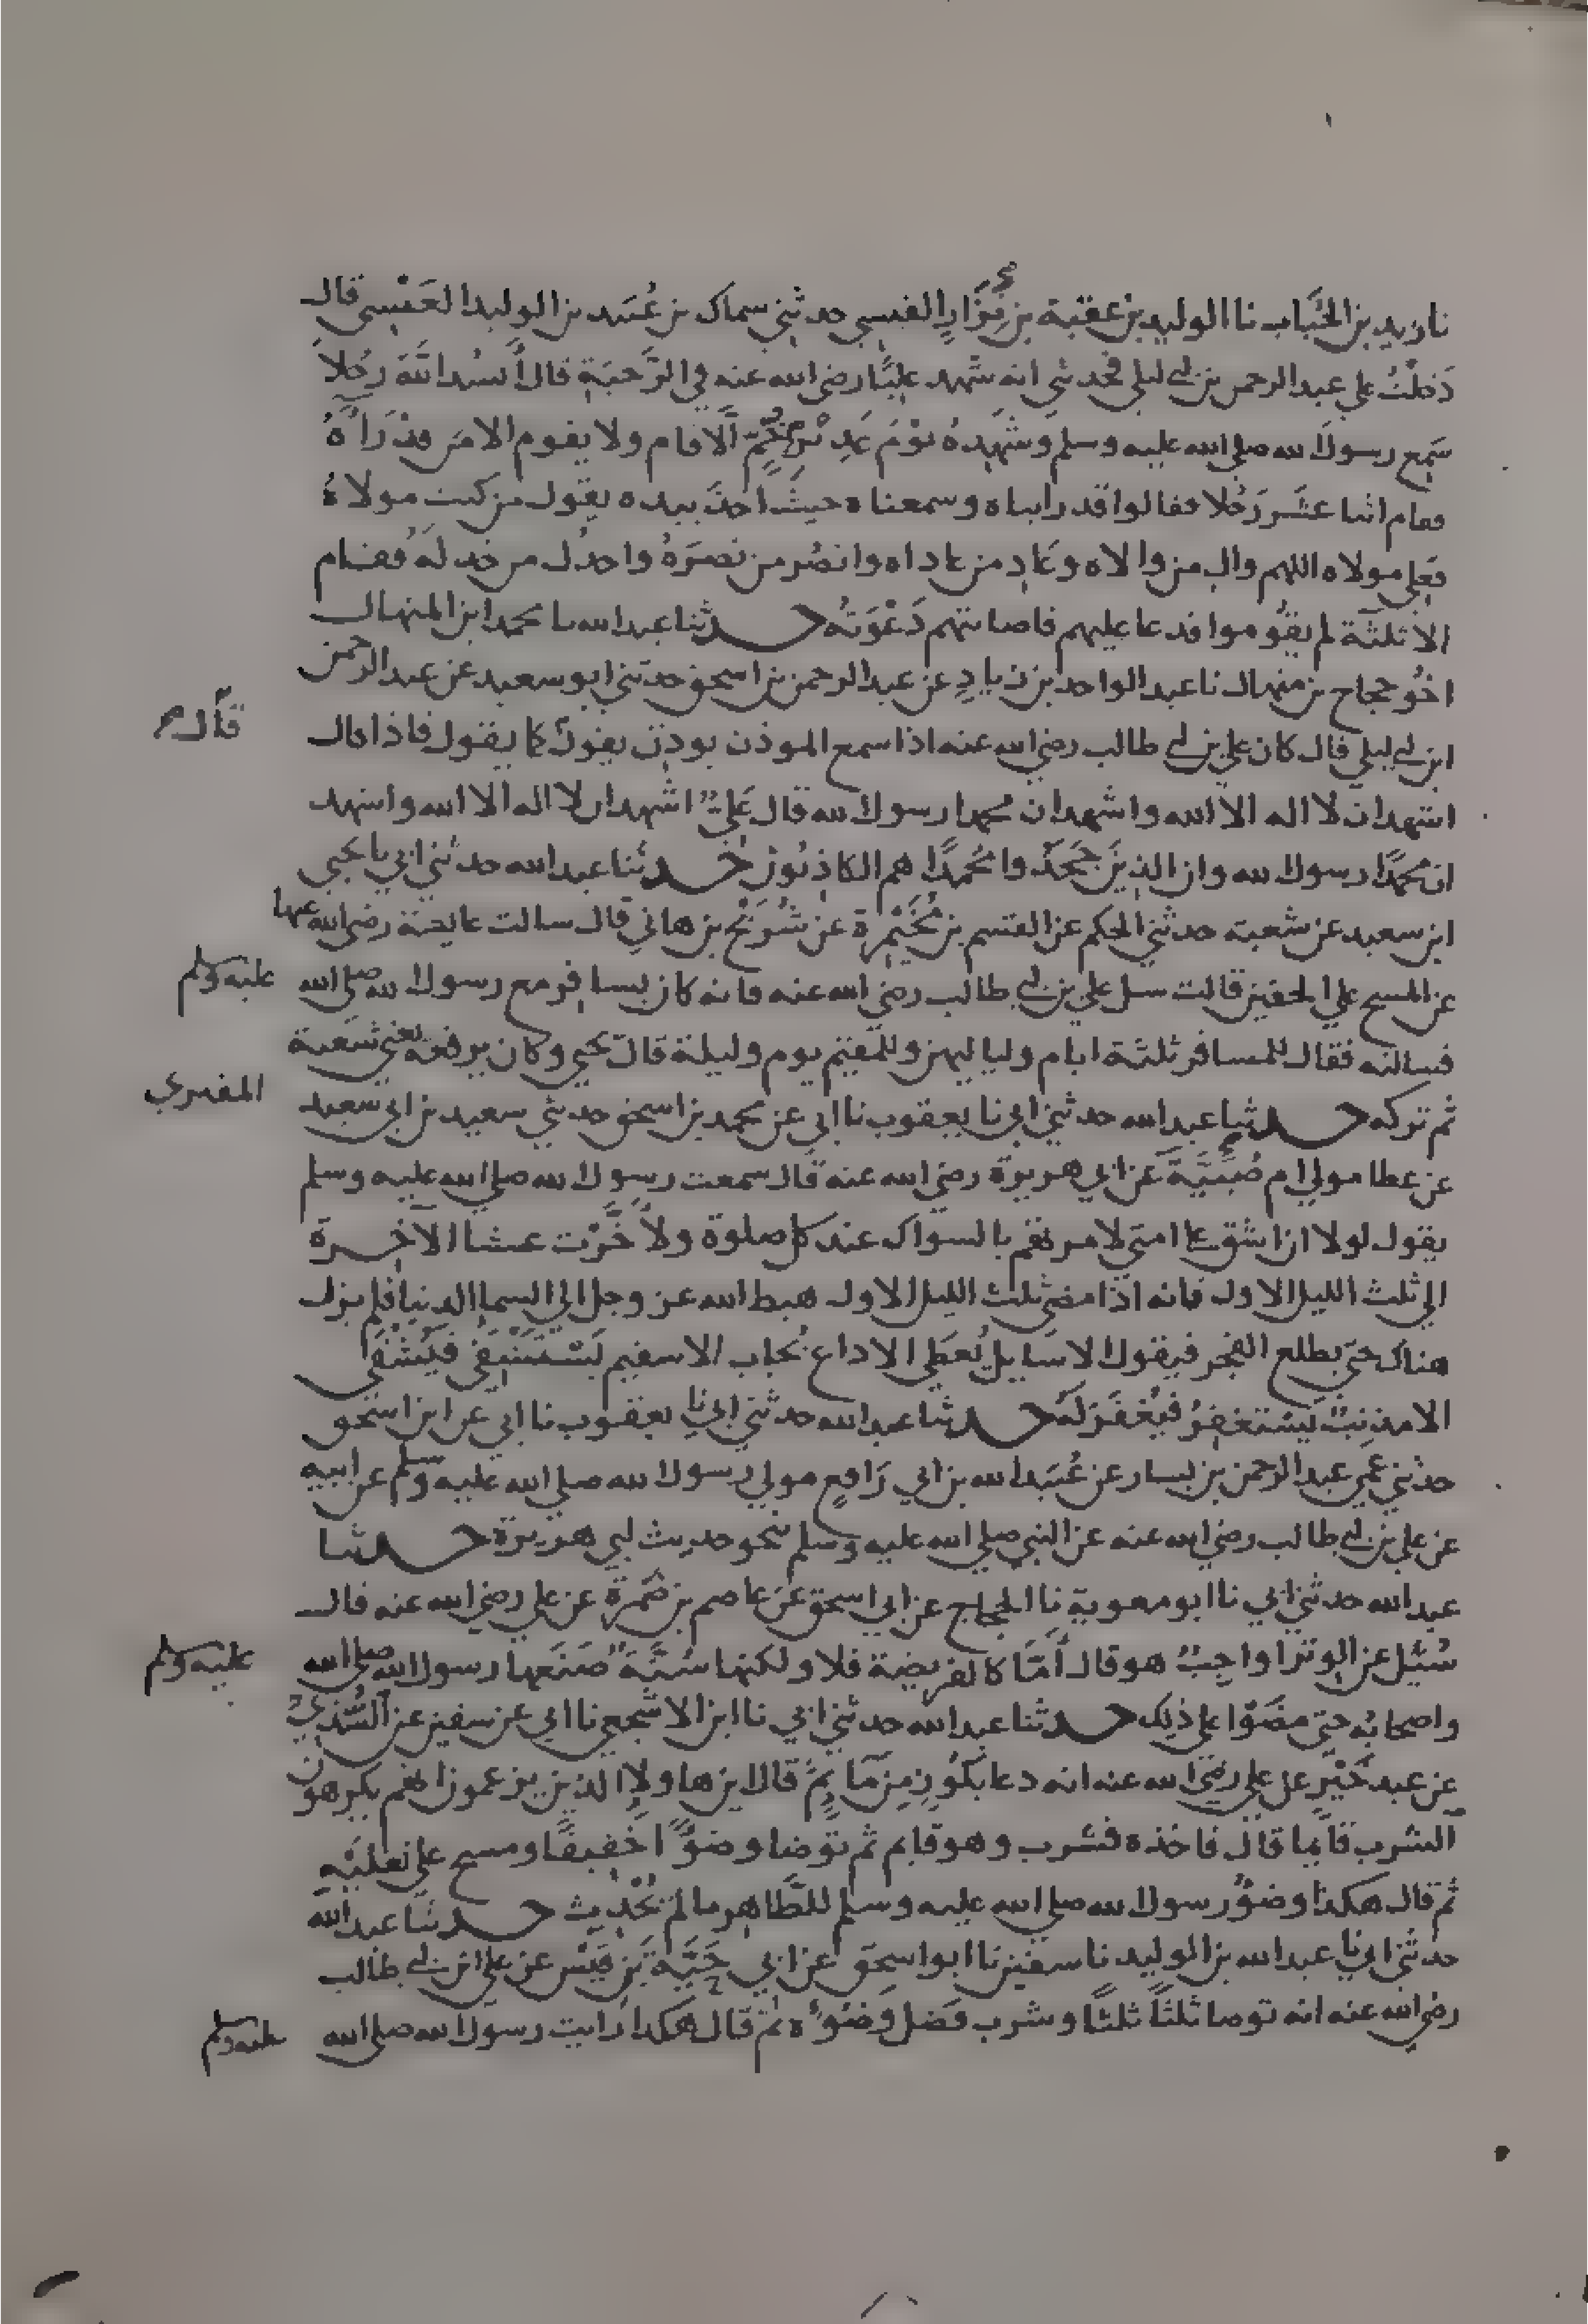 نا زيد بن الحُبَاب نا الوليد بن عقبة بن نِزَارٍ القيسي حدثني سماك بن عُبَيد بن الوليد العَبْسِي قال
دَخلْتُ علي عبد الرحمن بن ابي ليلي فحدثني انه شهد عليًّا رضي الله عنه في الرَّحَبَةِ قال أنشد اللهَ رجُلا
سَمِع رسول الله صلي الله عليه وسلم وَشَهِدهُ يَوْمَ غَدِيرِ خُمٍّ الَّا قام ولا يقوم الا مَن قدْ رَآهُ
فقام اثنا عَشَر رَجُلا فقالوا قد رايناه وسمعناه حيثُ اخذ بيده يقول من كنت مولاهُ
فعلي مولاه اللهم والِ من والاه وعَادِ من عاداه وانصُر من نَصَرَهُ واخذُل من خذلَهُ فقام
الا ثلثة لم يقُوموا فدعا عليهم فاصابتهم دَعْوَتُهُ حدثنا عبد الله نا محمد ابن المنهال
اخُو حجاج بن منهال نا عبد الواحد بن زيادٍ عن عبد الرحمن بن اسحق حدثني ابو سعيد عن عبد الرحمن
ابن ابي ليلي قال كان علي بن ابي طالب رضي الله عنه اذا سمع الموذن يوذن يقول كما يقول فاذا قال
قال م
اشهد ان لا اله الا الله واشهد ان محمدا رسول الله قال عَلِيٌّ اشهد ان لا اله الا الله واشهد
ان محمدًا رسول الله وان الذِينَ جَحَدُ وا محُمدًا هم الكاذِبُونَ حدثنا عبد الله حدثني ابي نا يحيي
ابن سعيد عن شعبة حدثني الحكم عن القسم بن مُخَيْمِرة عن شُرَيْح بن هاني قال سالت عايشة رضي الله عنها
عن المسح علي الخفين قالت سل علي بن ابي طالب رضي الله عنه فانه كان يسافر مع رسول الله صلي الله عليه وسلم
فسالته فقال للمسافر ثلثة ايام ولياليهن وللمُقيم يوم وليلة قال يحيي وكان يرفعه يعني شعبة
ثم تركه حدثنا عبد الله حدثني ابي نا يعقوب نا ابي عن محمد بن اسحق حدثني سعيد بن ابي سعيد المقبري
عن عطا مولي ام صُبَيَّةَ عن ابي هريرة رضي الله عنه قال سمعت رسول الله صلي الله عليه وسلم
يقول لولا ان اشق علي امتي لامرتهم بالسواك عند كل صلوة ولأَخَّرْت عشا الآخِرةَ
الي ثلث الليل الاول فانه اذا مضي ثلث الليل الاول هبط الله عز وجل الي السما الدنيا فلم يزل
هناك حتي يطلع الفجر فيقول الا سَايل يُعطَي الا داع يُجاب الا سقيم يَسْتَشْفِي فَيُشْفَي
الا مذنبٌ يَسْتغفِرُ فيُغْفَرَ لَهُ حدثنا عبد الله حدثني ابي نا يعقوب نا ابي عن ابن اسحق
حدثني عمي عبد الرحمن بن يسار عن عُبَيد الله بن ابي رَافِعٍ مولي رسول الله صلي الله عليه وسلم عن ابيه
عن علي بن ابي طالب رضي الله عنه عن النبي صلي الله عليه وسلم نحو حديث ابي هريرة حدثنا
عبد الله حدثني ابي نا ابو معوية نا الحجاج عن ابي اسحق عن عاصم بن ضَمْرةَ عن علي رضي الله عنه قال
سُئِل عن الوتر اواجِبٌ هو قال أمَّا كالفريضة فلا ولكنها سُنَّةٌ صَنَعها رسول الله صلي الله عليه وسلم
واصحابُه حتي مضَوْا علي ذلك حدثنا عبد الله حدثني ابي نا ابن الاشجعي نا ابي عن سفين عن السُّدِيِّ
عن عبد خَيْرٍ عن علي رضي الله عنه انه دعا بِكُوزٍ مِن مَّا ثُمَّ قال اين هاولاِ الذين يزعمون انهم يكرهون
الشرب قآيما قال فاخذه فشرب وهو قايم ثم توضا وضوًّا خَفِيفًا ومسح علي نعليْه
ثم قال هكذا وضوُ رسول الله صلي الله عليه وسلم للطَّاهِر ما لم يُحْدِث حدثنا عبد الله
حدثني ابي نا عبد الله بن الوليد نا سفين نا ابو اسحق عن ابي حَيَّةَ بن قيْس عن علي ابن ابي طالب
رضي الله عنه انه توضا ثلثًا ثلثًا وشرب فَضل وَضُوءِه ثم قال هكذا رايت رسول الله صلي الله عليه وسلم